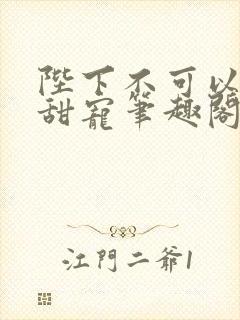 陛下不可以
甜寵筆趣閣
江門二爺1